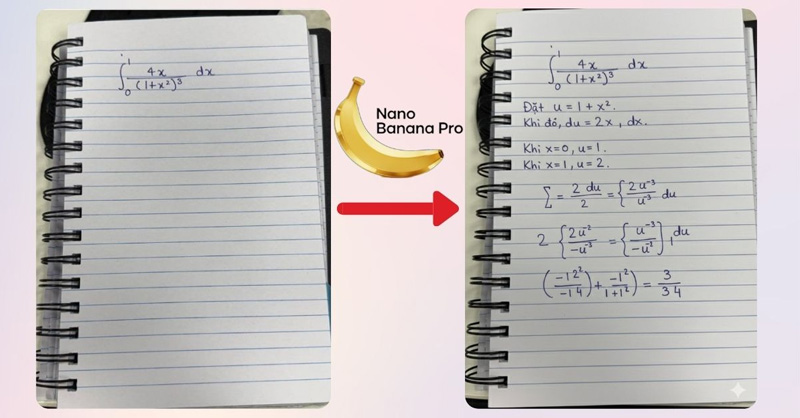 ∫₀¹ 4x/(1+x²)³ dx
Nano
Banana Pro
∫₀¹ 4x/(1+x²)³ dx
Đặt u = 1 + x².
Khi đó, du = 2x, dx.
Khi x=0, u=1.
Khi x=1, u=2.
∑ = 2 du/2 = {2u⁻³/u⁻³ du
2 {2u⁻²/-u⁻³ = {u⁻³/-u⁻²} 1 du
(-12²/-14) + -1²/1+1²) = 3/34